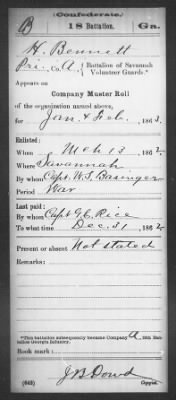 (Confederate.)
B 18 Battalion. Ga.
H. Bennett
Pri, Co. A, Battalion of Savannah Volunteer Guards.*
Appears on
Company Muster Roll
of the organization named above,
for Jan. & Feb., 1863.
Enlisted:
When Mch 13, 1862.
Where Savannah
By whom Capt. W. S. Basinger
Period War
Last paid:
By whom Capt G. C. Rice
To what time Dec. 31, 1862.
Present or absent Not stated
Remarks:
*This battalion subsequently became Company A, 18th Battalion Georgia Infantry.
Book mark:
J B Dowd
(642) Copyist.